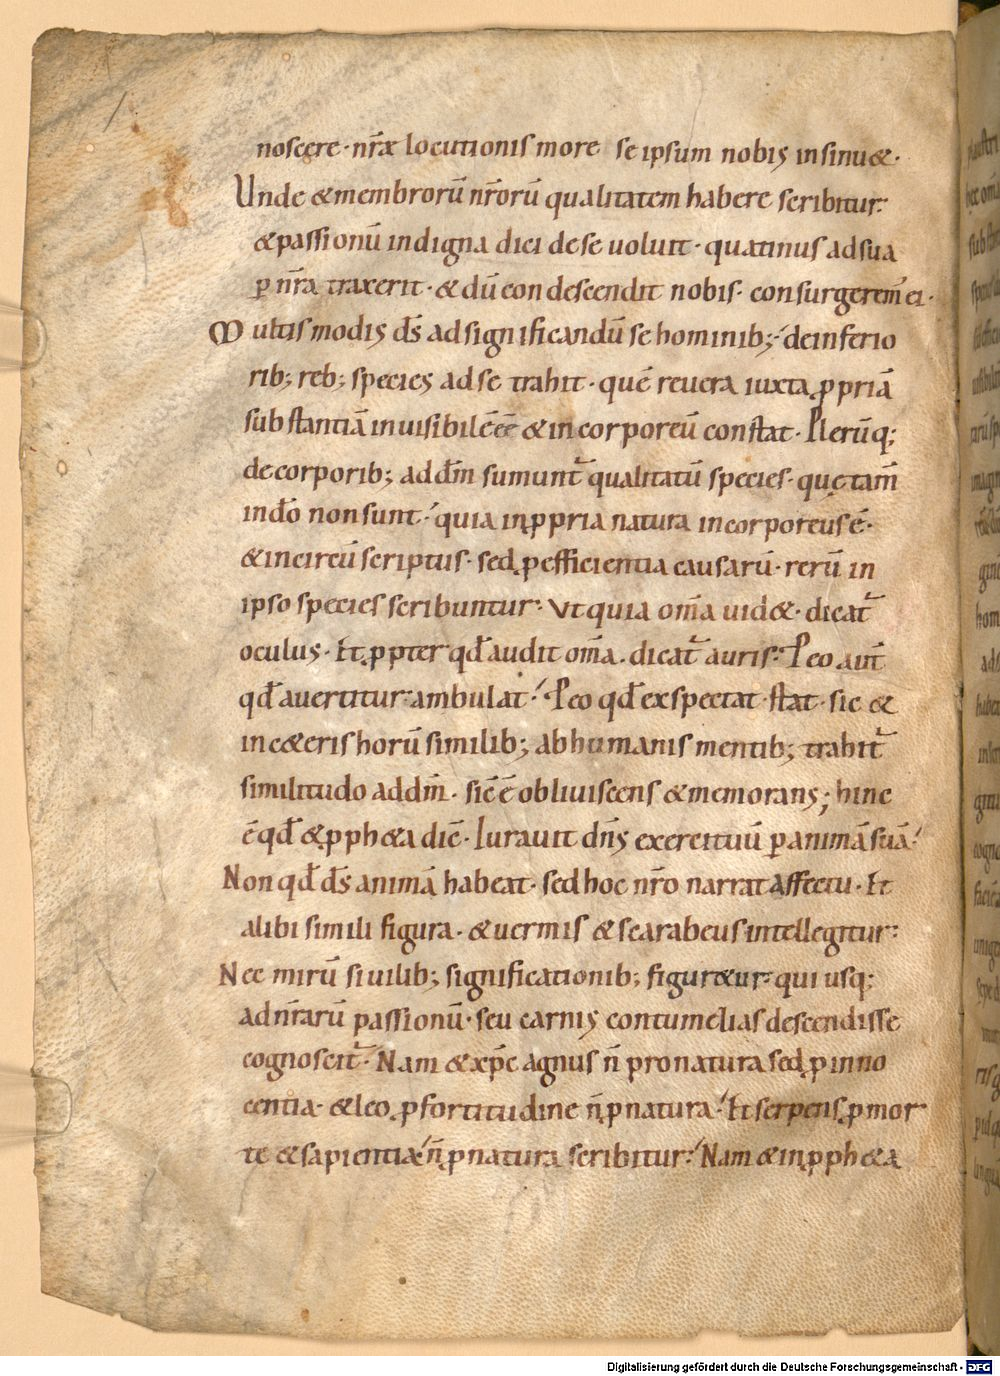 noscere · nr̄æ locutionis more se ipsum nobis insinu&·
Unde &membrorū nr̄orū qualitatem habere scribitur:
&passionū indigna dici de se uoluit · quatinus ad sua
ꝑ nr̄a traxerit · & dū condescendit nobis · consurgerem̄ ei ·
Multis modis d̄s ad significandū se hominib; · de inferio
rib; reb; species ad se trahit · quē reuera iuxta ꝓpriā
substantiā inuisibilē ēē & incorporeū constat · Plerūq;
de corporib; ad dm̄ sumunt᷑ qualitatū species · quę tam̄
in dō non sunt · quia in ꝓpria natura incorporeus ē ·
& incircūscriptus · sed ꝓ efficientia causarū · rerū in
ipso species scribuntur · Vt quia om̄a uid& · dicat᷑
oculus · Et ꝓpter qd̄ audit om̄a · dicat᷑ auris · Peo aut̄
qd̄ auertitur · ambulat · Peo qd̄ exspectat · stat · sic &
in c&eris horū similib; ab humanis mentib; trahit᷑
similitudo ad dm̄ · sic̄ ē obliuiscens & memorans; hinc
ē qd̄ & ꝓph&a dic̄ · Iurauit dn̄s exercituū ꝑ animā suā ·
Non qd̄ d̄s animā habeat · sed hoc nr̄o narrat affectu · Et
alibi simili figura · & uermis & scarabeus intellegitur:
Nec mirū si uilib; significationib; figur&ur · qui usq;
ad nr̄arū passionū · seu carnis contumelias descendisse
cognoscit᷑ · Nam & xp̄c agnus n̄ pro natura sed ꝓ inno
centia · & leo ꝓ fortitudine n̄ ꝓ natura · Et serpens ꝓ mor
te & sapientia · n̄ ꝓ natura scribitur · Nam & in ꝓph&a
Digitalisierung gefördert durch die Deutsche Forschungsgemeinschaft - DFG